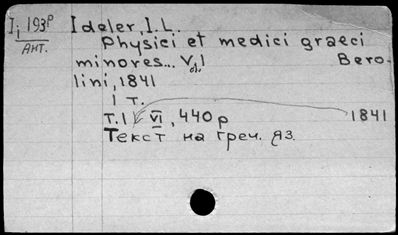 Ii 193р Ideler, I. L.
Ант. Physici et medici graeci
minores... V. 1 Bero-
lini, 1841
1 т.
т. 1 VI, 440 р 1841
Текст на греч. яз.